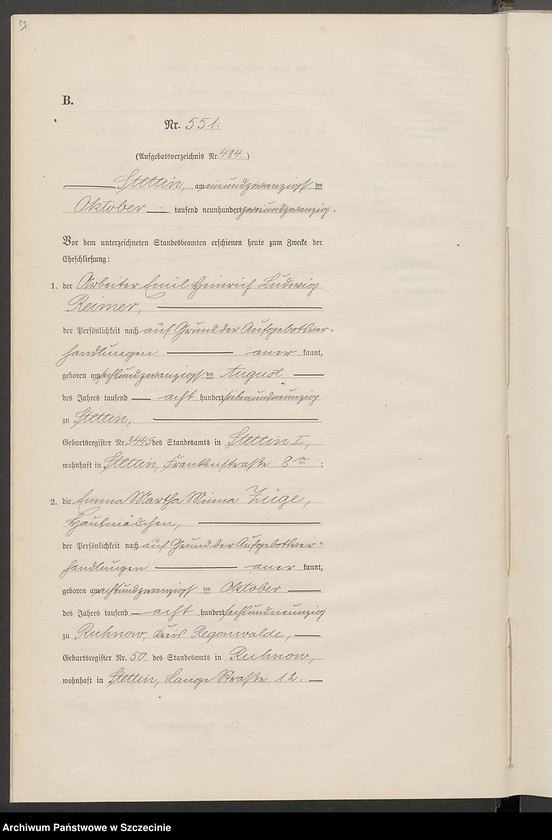 7
B.
Nr. 551.
(Aufgebotsverzeichnis Nr. 484.)
Stettin, am einundzwanzigsten
Oktober tausend neunhundert zweiundzwanzig.
Vor dem unterzeichneten Standesbeamten erschienen heute zum Zwecke der
Eheschließung:
1. der Arbeiter Emil Heinrich Ludwig
Reimer,
der Persönlichkeit nach auf Grund der Aufgebotsver-
handlungen aner kannt,
geboren am sechsundzwanzigsten August
des Jahres tausend acht hundert siebenundneunzig
zu Stettin,
Geburtsregister Nr. 3445 des Standesamts in Stettin I,
wohnhaft in Stettin, Frankenstraße 8a;
2. die Emma Martha Minna Züge,
Hausmädchen,
der Persönlichkeit nach auf Grund der Aufgebotsver-
handlungen aner kannt,
geboren am achtundzwanzigsten Oktober
des Jahres tausend acht hundert sechsundneunzig
zu Ruhnow, Kreis Regenwalde,
Geburtsregister Nr. 50 des Standesamts in Ruhnow,
wohnhaft in Stettin, Lange Straße 12.
Archiwum Państwowe w Szczecinie